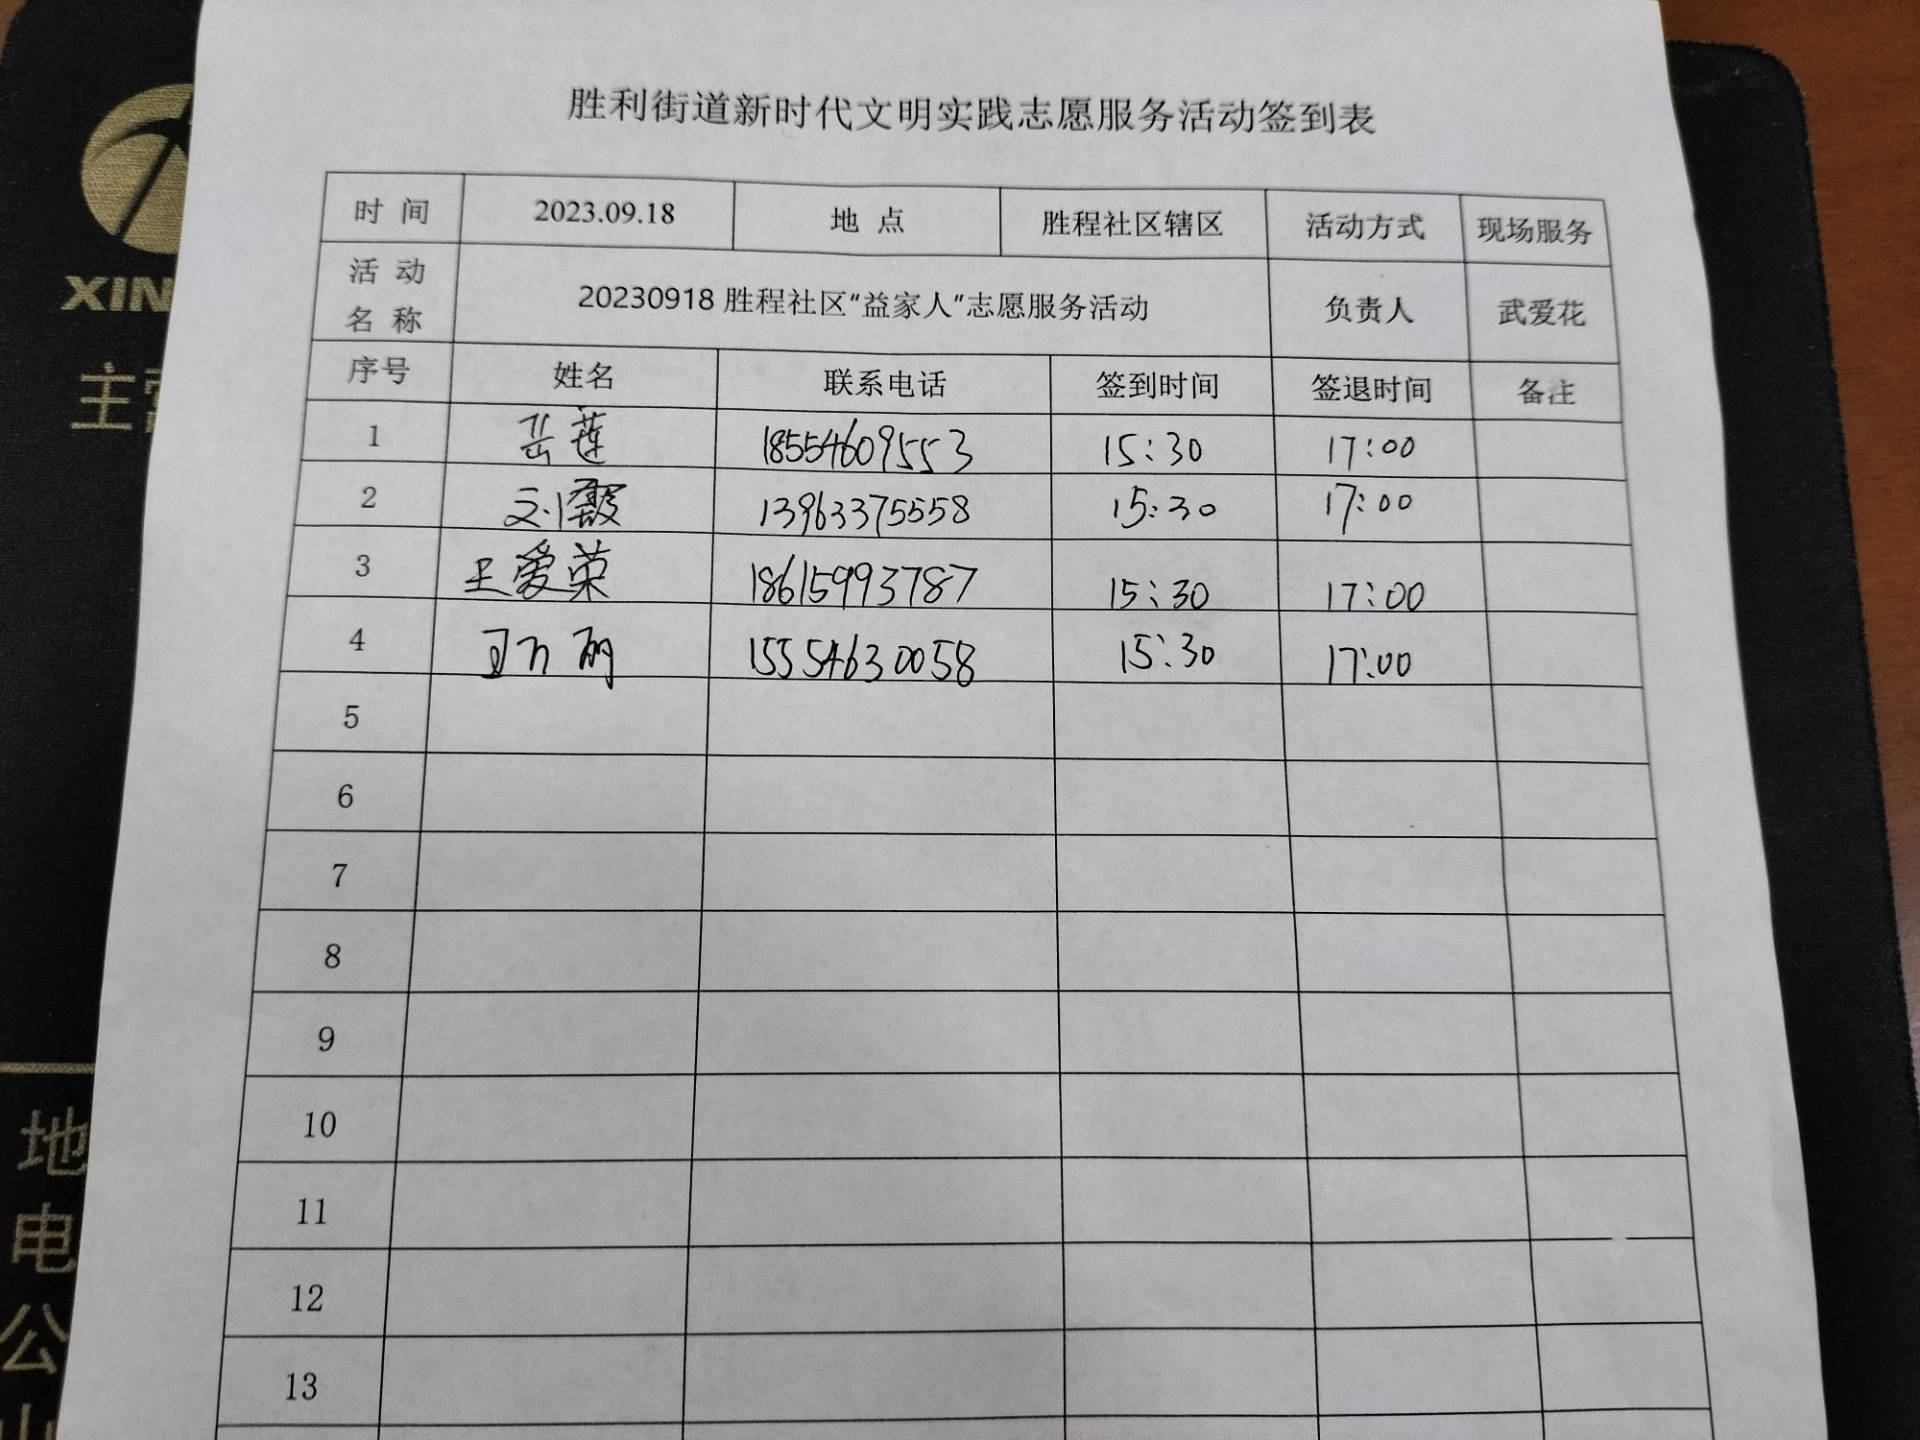 胜利街道新时代文明实践志愿服务活动签到表
时 间 2023.09.18 地 点 胜程社区辖区 活动方式 现场服务
活 动
名 称 20230918 胜程社区"益家人"志愿服务活动 负责人 武爱花
序号 姓名 联系电话 签到时间 签退时间 备注
1 岳莲 18554609553 15:30 17:00
2 刘霞 13963375558 15:30 17:00
3 王爱荣 18615993787 15:30 17:00
4 15554630058 15:30 17:00
5
6
7
8
9
10
11
12
13
XIN
主营
地
电
公